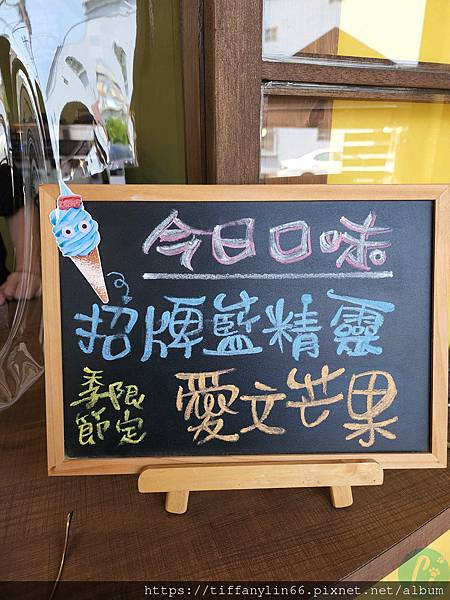 今日口味。
招牌藍精靈
季限
節定
愛文芒果
https://tiffanylin66.pixnet.net/album